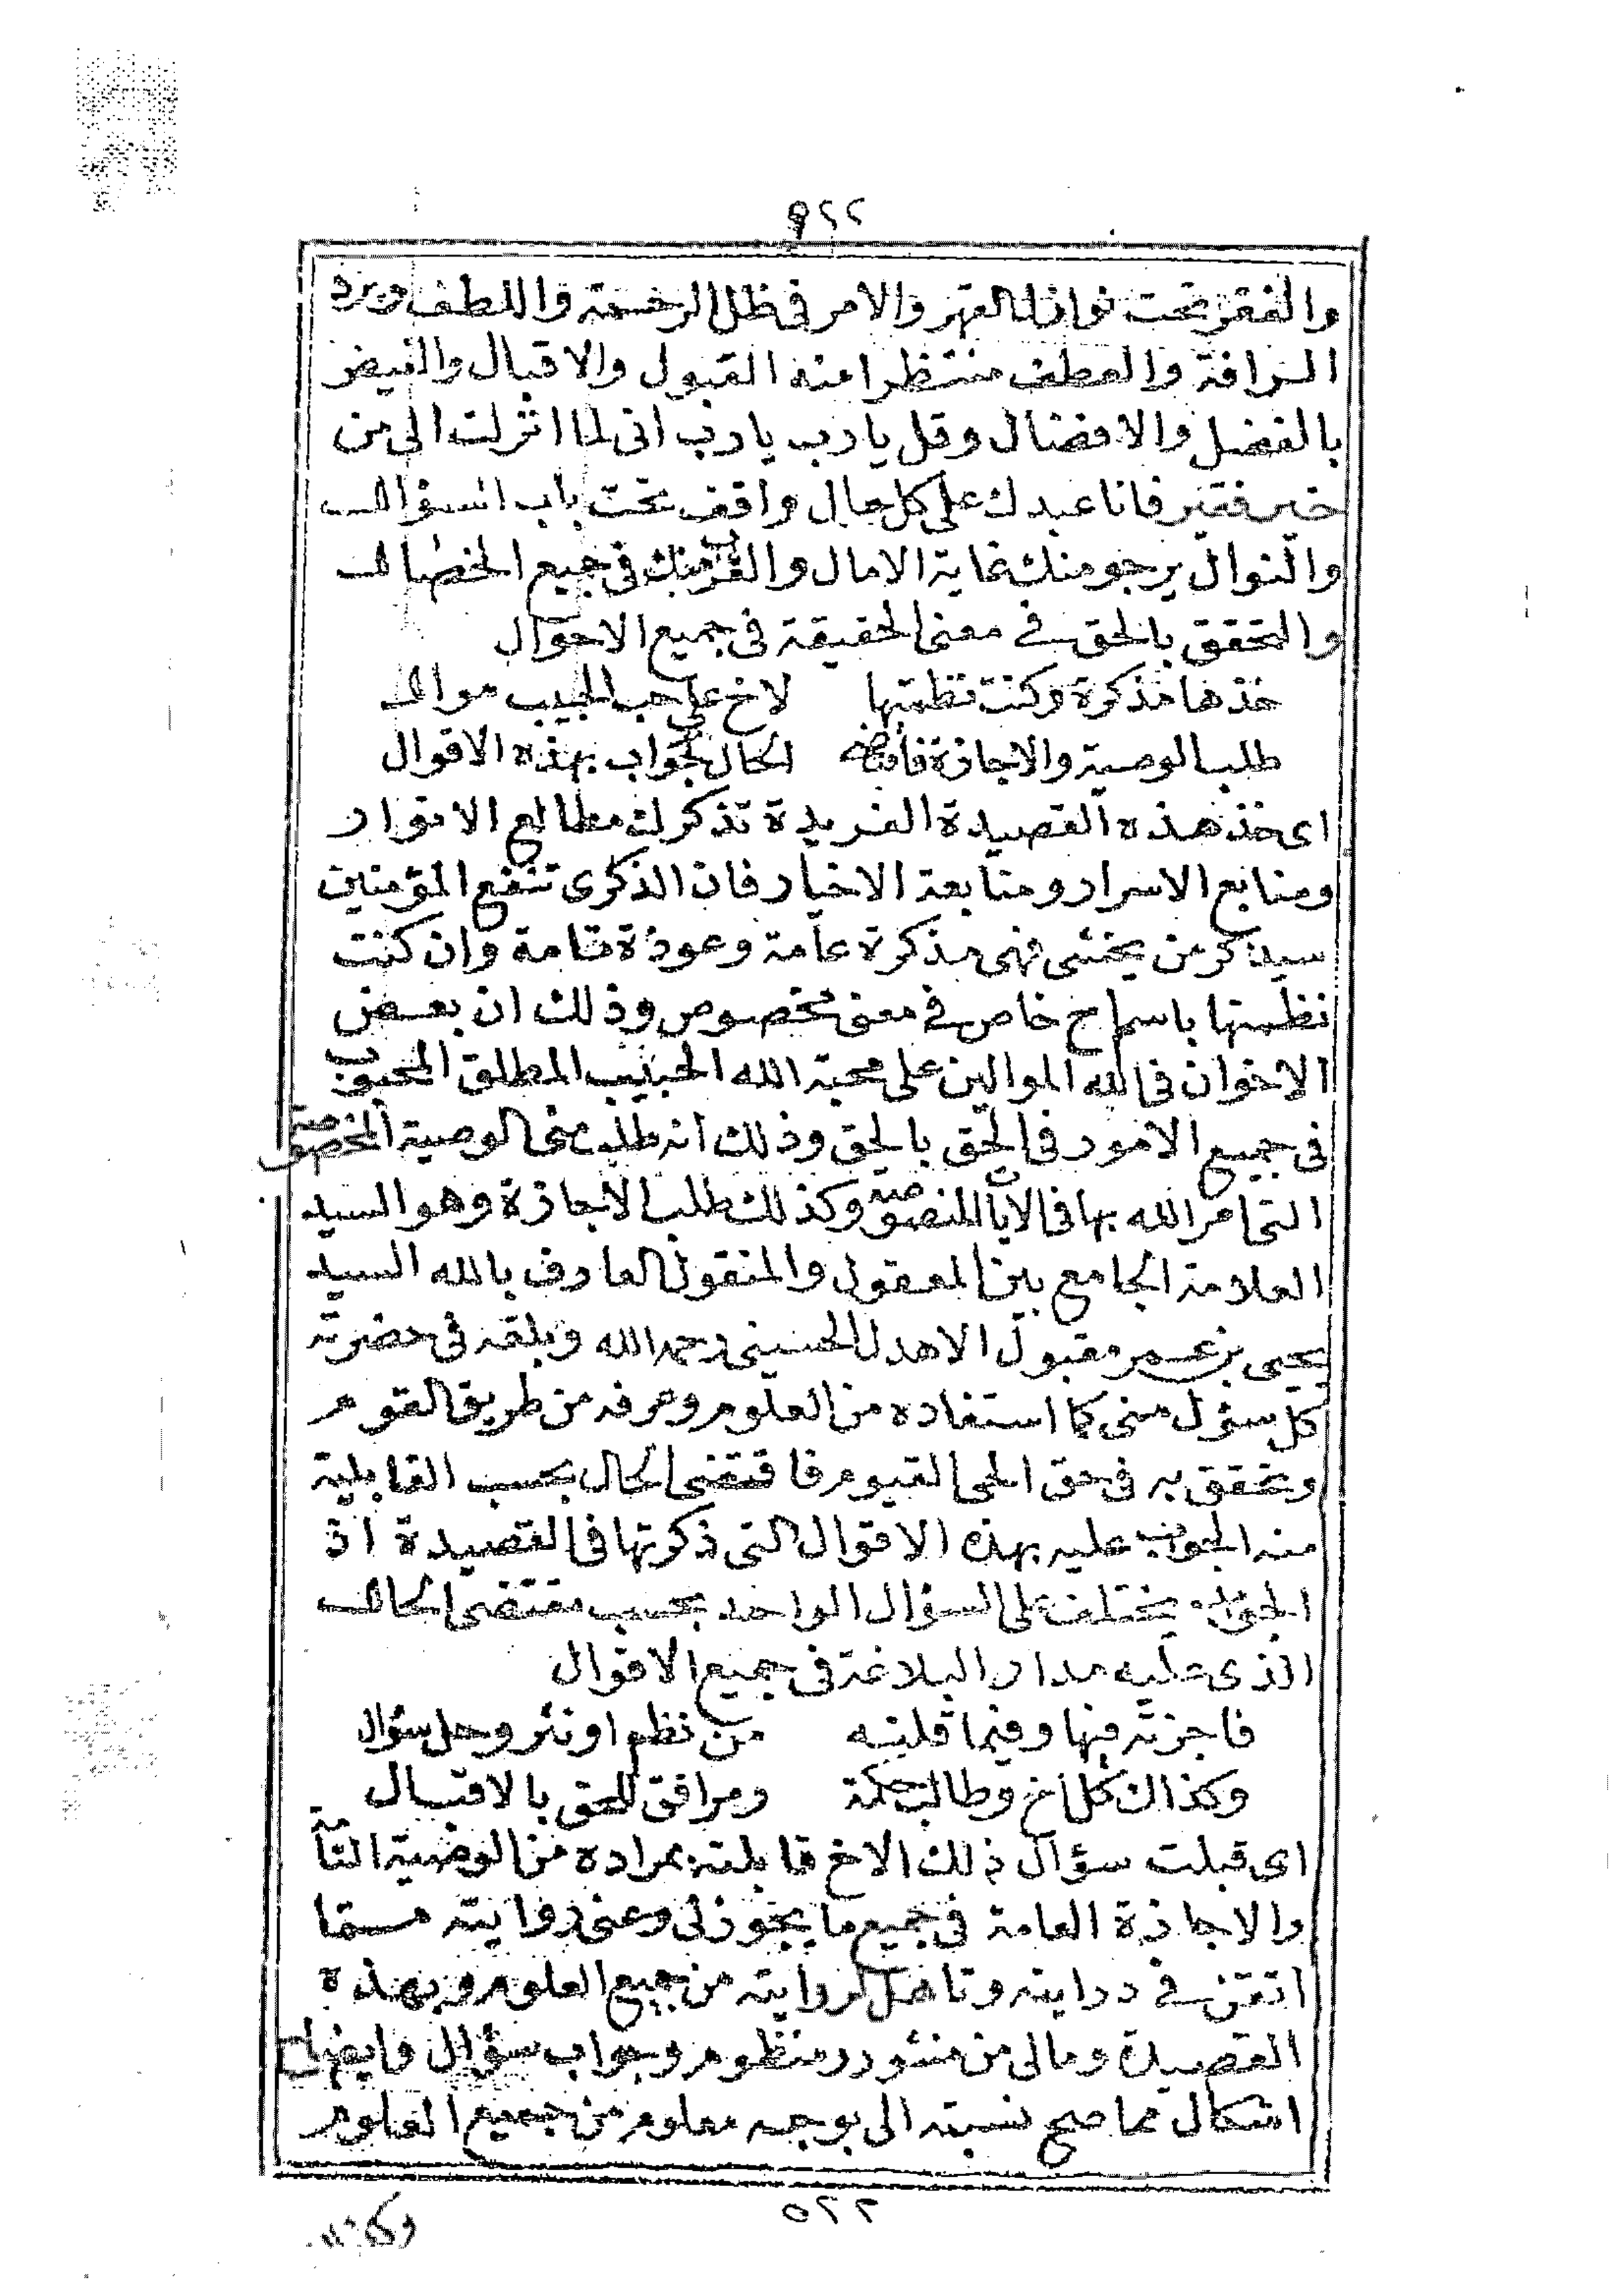 ٩٢٢
والفقر تحت نوازل القهر والامر فى ظل الرحمة واللطف وبرد
الرافة والعطف منتظرا منه القبول والاقبال والفيض
بالفضل والافضال وقل يارب يارب انى لما انزلت الى من
خير فقير فانا عبدك على كل حال واقف تحت باب السؤال
والنوال يرجو منك غاية الامال والقرب منك فى جميع الخصال
والتحقق بالحق فى معنى الحقيقة فى جميع الاحوال
خذها مذكرة وكنت نظمتها لاخ على حب الحبيب موال
طلب الوصية والاجازة فاقتضى الحال لجواب بهذه الاقوال
اى خذ هذه القصيدة الفريدة تذكر لك مطالع الانوار
ومنابع الاسرار ومتابعة الاخيار فان الذكرى تنفع المؤمنين
سيذكر من يخشى فهى مذكرة عامة وعوذة تامة وان كنت
نظمتها باسم اخ خاص فى معنى مخصوص وذلك ان بعض
الاخوان فى الله الموالين على محبة الله الحبيب المطلق المحبوب
فى جميع الامور فى الحق بالحق وذلك انه طلب منى الوصية المخصوصة
التى امر الله بها فى الايات المنصوصة وكذلك طلب الاجازة وهو السيد
العلامة الجامع بين المعقول والمنقول العارف بالله السيد
يحيى بن عمر مقبول الاهدل الحسينى رحمه الله وبلغه فى حضرته
كل سؤل منى كما استفاده من العلوم وعرفه من طريق القوم
وتحقق به فى حق الحى القيوم فاقتضى الحال بحسب القابلية
منه الجواب عليه بهذه الاقوال التى ذكرتها فى القصيدة اذ
الجواب يختلف على السؤال الواحد بحسب مقتضى الحال
الذى عليه مدار البلاغة فى جميع الاقوال
فاجزته فيها وفيما قلته من نظم او نثر وحل سؤال
وكذاك كل اخ وطالب حكمة ومرافق للحق بالاقبال
اى قبلت سؤال ذلك الاخ قابلته بمراده من الوصية التامة
والاجازة العامة فى جميع ما يجوز لى وعنى روايته مما
اتقن فى درايته وتاهل لروايته من جميع العلوم وبهذه
القصيدة ومالى من منثور ومنظوم وجواب سؤال وايضاح
اشكال مما صح نسبته الى بوجه معلوم من جميع العلوم
٥٢٢